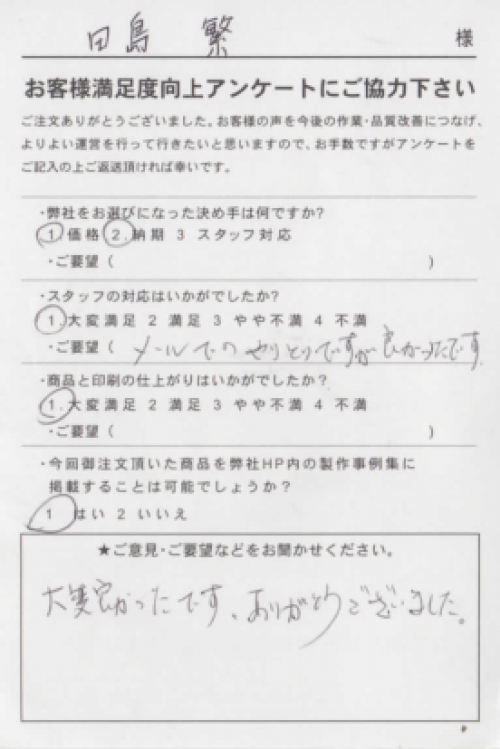 田島 繁 様
お客様満足度向上アンケートにご協力下さい
ご注文ありがとうございました。お客様の声を今後の作業・品質改善につなげ、
よりよい運営を行って行きたいと思いますので、お手数ですがアンケートを
ご記入の上ご返送頂ければ幸いです。
・弊社をお選びになった決め手は何ですか?
1.価格 2.納期 3 スタッフ対応
・ご要望 ( )
・スタッフの対応はいかがでしたか?
1.大変満足 2 満足 3 やや不満 4 不満
・ご要望 ( メールでのやりとりですが良かったです
・商品と印刷の仕上がりはいかがでしたか?
1.大変満足 2 満足 3 やや不満 4 不満
・ご要望 ( )
・今回御注文頂いた商品を弊社HP内の製作事例集に
掲載することは可能でしょうか?
1 はい 2 いいえ
★ご意見・ご要望などをお聞かせください。
大変良かったです、ありがとうございました。